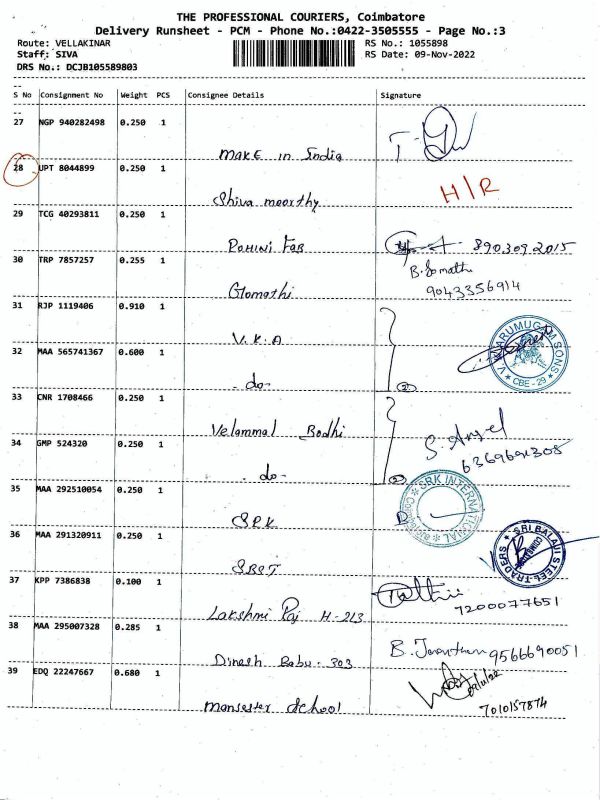 THE PROFESSIONAL COURIERS, Coimbatore
Delivery Runsheet - PCM - Phone No.:0422-3505555 - Page No.:3
Route: VELLAKINAR RS No.: 1055898
Staff: SIVA RS Date: 09-Nov-2022
DRS No.: DCJB105589803
--
S No Consignment No Weight PCS Consignee Details Signature
--
27 NGP 940282498 0.250 1
Make in India
28 UPT 8044899 0.250 1
Shiva moorthy H/R
29 TCG 40293811 0.250 1
ROHINI FAB 8903092015
30 TRP 7857257 0.255 1 B. Somathi
Gomathi 9043356914
31 RJP 1119406 0.910 1
V.K.A
V. ARUMUGAM SONS CBE-29
32 MAA 565741367 0.600 1
- do - 2
33 CNR 1708466 0.250 1
Velammal Bodhi
34 GMP 524320 0.250 1 6369691308
- do - 2
SRK INTERNATIONAL
35 MAA 292510054 0.250 1
SRK
36 MAA 291320911 0.250 1
SRI BALAJI STEEL TRADERS
SBST
37 KPP 7386838 0.100 1
Lakshmi Raj H-213 7200077651
38 MAA 295007328 0.285 1
Dinesh Babu - 303 9566690051
39 EDQ 22247667 0.680 1
Mansester School 7010157874